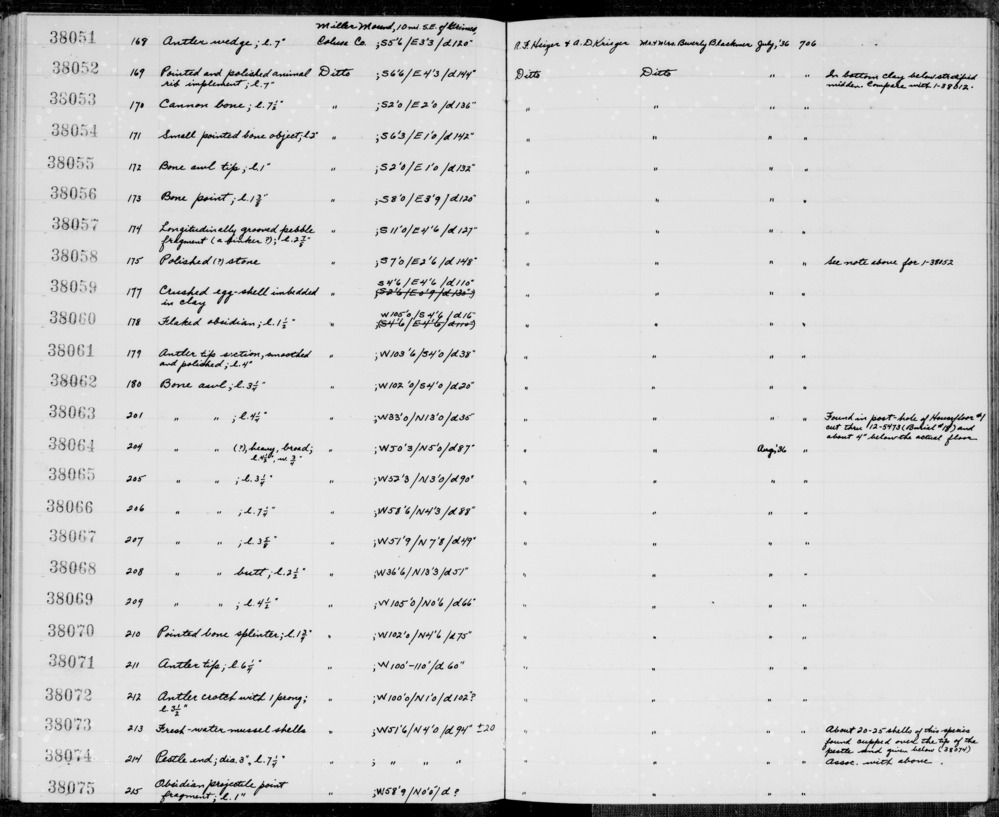 Miller Mound, 10 mi S.E. of Grimes
38051 168 Antler wedge; l. 7" Colusa Co. ; S5'6/E3'3/d120" R.F. Heizer & A.D. Krieger Mr & Mrs. Beverly Blackmer July, '36 706
38052 169 Pointed and polished animal Ditto ; S6'6/E4'3/d144" Ditto Ditto " " In bottom clay below stratified
rib implement; l. 7" midden. Compare with 1-38012.
38053 170 Cannon bone; l. 7½" " ; S2'0/E2'0/d136" " " " "
38054 171 Small pointed bone object; l. 5" " ; S6'3/E1'0/d142" " " " "
38055 172 Bone awl tip; l. 1" " ; S2'0/E1'0/d132" " " " "
38056 173 Bone point; l. 1⅞" " ; S8'0/E3'9/d120" " " " "
38057 174 Longitudinally grooved pebble " ; S11'0/E4'6/d127" " " " "
fragment (a sinker?); l. 2⅞"
38058 175 Polished (?) stone " ; S7'0/E2'6/d148" " " " " See note above for 1-38052
S4'6/E4'6/d110"
38059 177 Crushed egg-shell imbedded " (S2'6/E0'9/d130") " " " "
in clay
W105'0/S4'6/d16"
38060 178 Flaked obsidian; l. 1½" " (S4'6/E4'6/d110") " " " "
38061 179 Antler tip section, smoothed " ; W103'6/S4'0/d38" " " " "
and polished; l. 4"
38062 180 Bone awl; l. 3¼" " ; W102'0/S4'0/d20" " " " "
38063 201 " " ; l. 4¼" " ; W33'0/N13'0/d35" " " " " Found in post-hole of Housefloor #1
cut thru 12-5473 (Burial #18) and
about 4" below the actual floor
38064 204 " " (?), heavy, broad; " ; W50'3/N5'0/d87" " " Aug, '36 "
l. 4½", w. ¾"
38065 205 " " ; l. 3¼" " ; W52'3/N3'0/d90" " " " "
38066 206 " " ; l. 7¼" " ; W58'6/N4'3/d88" " " " "
38067 207 " " ; l. 3⅝" " ; W51'9/N7'8/d49" " " " "
38068 208 " " butt; l. 2½" " ; W36'6/N13'3/d51" " " " "
38069 209 " " ; l. 4½" " ; W105'0/N0'6/d66" " " " "
38070 210 Pointed bone splinter; l. 1¾" " ; W102'0/N4'6/d75" " " " "
38071 211 Antler tip; l. 6¼" " ; W100'-110'/d60" " " " "
38072 212 Antler crotch with 1 prong; " ; W100'0/N1'0/d102"? " " " "
l. 3½"
38073 213 Fresh-water mussel shells " ; W51'6/N4'0/d94" ±20 " " " " About 20-25 shells of this species
found cupped over the tip of the
pestle end given below (38074)
38074 214 Pestle end; dia. 3", l. 7½" " ; " " " " " " " Assoc. with above.
38075 215 Obsidian projectile point " ; W58'9/N0'0/d? " " " "
fragment; l. 1"